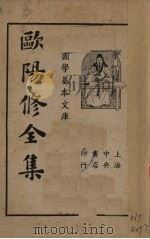 歐陽修全集
國學基本文庫
上海
中央書店
印行